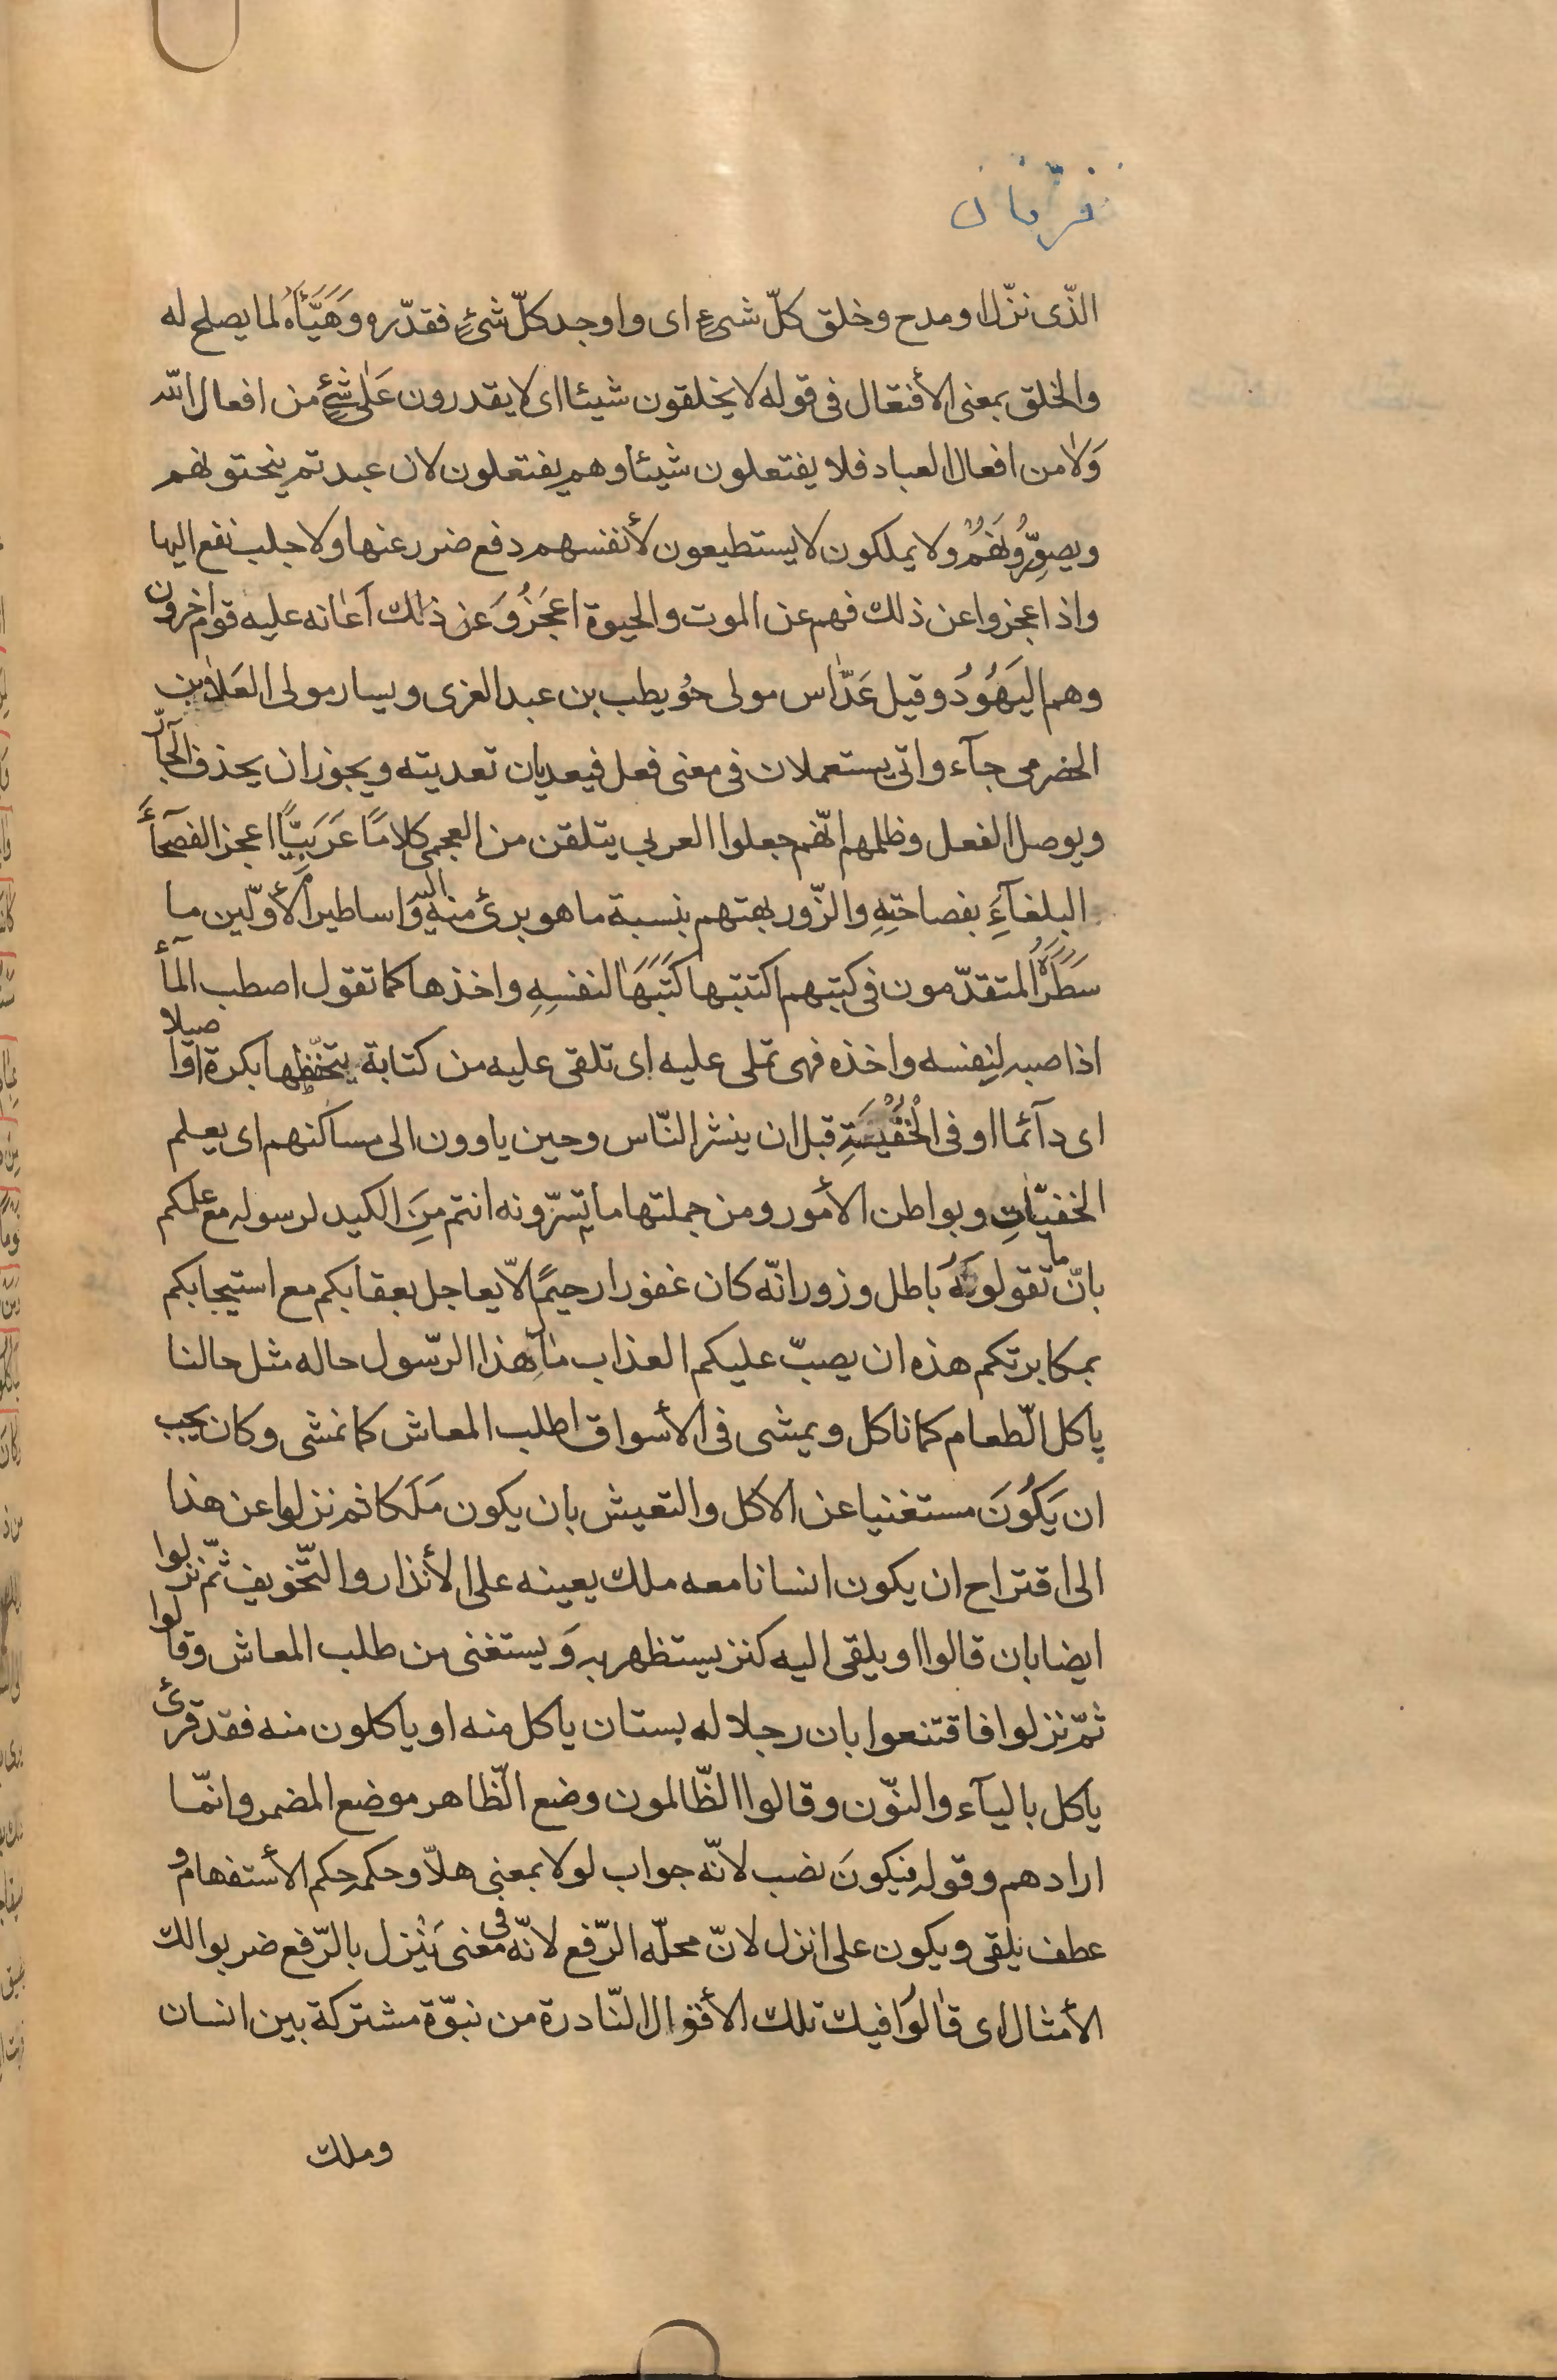 فرقان
الّذى نزّل او مدح وخلق كلّ شىءٍ اى واوجد كلّ شئٍ فقدّره وَهَيَّأَهُ لما يصلح له
والخلق بمعنى الأفتعال فى قوله لا يخلقون شيئا اى لا يقدرون عَلٰى شئٍ من افعال الله
وَلا من افعال العباد فلا يفتعلون شيئا وهم يفتعلون لان عبدتم ينحتونهم
ويصوِّرُونَهُمْ ولا يملكون لا يستطيعون لأنفسهم دفع ضرر عنها ولا جلب نفع اليها
واذا عجزوا عن ذلك فهم عن الموت والحيوة اعجَزُ وَعن ذلك اَعانه عليه قوم اخرون
وهم اليَهُودُ وقيل عَدّاس مولى حُويطب بن عبد العزى ويسار مولى العَلاء بن
الحضرمى جآء واتى يستعملان فى معنى فعل فيعديان تعديته ويجوز ان يحذف الجآرّ
ويوصل الفعل وظلمهم انّهم جعلوا العربى يتلقن من العجمى كلامًا عَرَبيًّا اعجز الفصحآءَ
البلغآءِ بفصاحتِهِ والزّور بهتهم بنسبة ما هو برئ منه اليه وَاساطير الأوّلين ما
سَطَرَهُ المتقدّمون فى كتبهم اكتتبها كَتَبَهَا لنفسِهِ واخذها كما تقول اصطب المآء
اذا صبه لنفسه واخذه فهى تملى عليه اى تلقى عليه من كتابة يتحفّظها بكرة واصيلا
اى دآئما او فى الخُفْيَةِ قبل ان ينشر النّاس وحين ياوون الى مساكنهم اى يعلم
الخفيّاتِ وبواطن الأمور ومن جملتها ما تسرّونه انتم مِنَ الكيد لرسوله مع علمكم
بانّ ما تقولونَهُ باطل وزور انّه كان غفورا رحيمًا لا يعاجل بعقابكم مع استيجابكم
بمكابرتكم هذه ان يصبّ عليكم العذاب مالِهذا الرّسول حاله مثل حالنا
ياكل الطّعام كما ناكل ويمشى فى الأسواق لطلب المعاش كما نمشى وكان يجب
ان يَكُونَ مستغنيا عن الاكل والتعيش بان يكون مَلَكا ثم نزلوا عن هذا
الى اقتراح ان يكون انسانا معه ملك يعينه على الأنذار والتّخويف ثمّ نزلوا
ايضا بان قالوا او يلقى اليه كنز يستظهر به وَيستغنى من طلب المعاش وقالوا
ثمّ نزلوا فاقتنعوا بان رجلا له بستان ياكل منه او ياكلون منه فقد قرئ
ياكل باليآء والنّون وقالوا الظّالمون وضع الظّاهر موضع المضمر وانّما
ارادهم وقوله فيكونَ نصب لانّه جواب لولا بمعنى هلاّ وحكمه حكم الأستفهام و
عطف يلقى ويكون على انزل لانّ محلّه الرّفع لانّه فى معنى يَنْزل بالرّفع ضربوا لك
الأمثال اى قالُوا فيك تلك الأقوال النّادرة من نبوّة مشتركة بين انسان
وملك